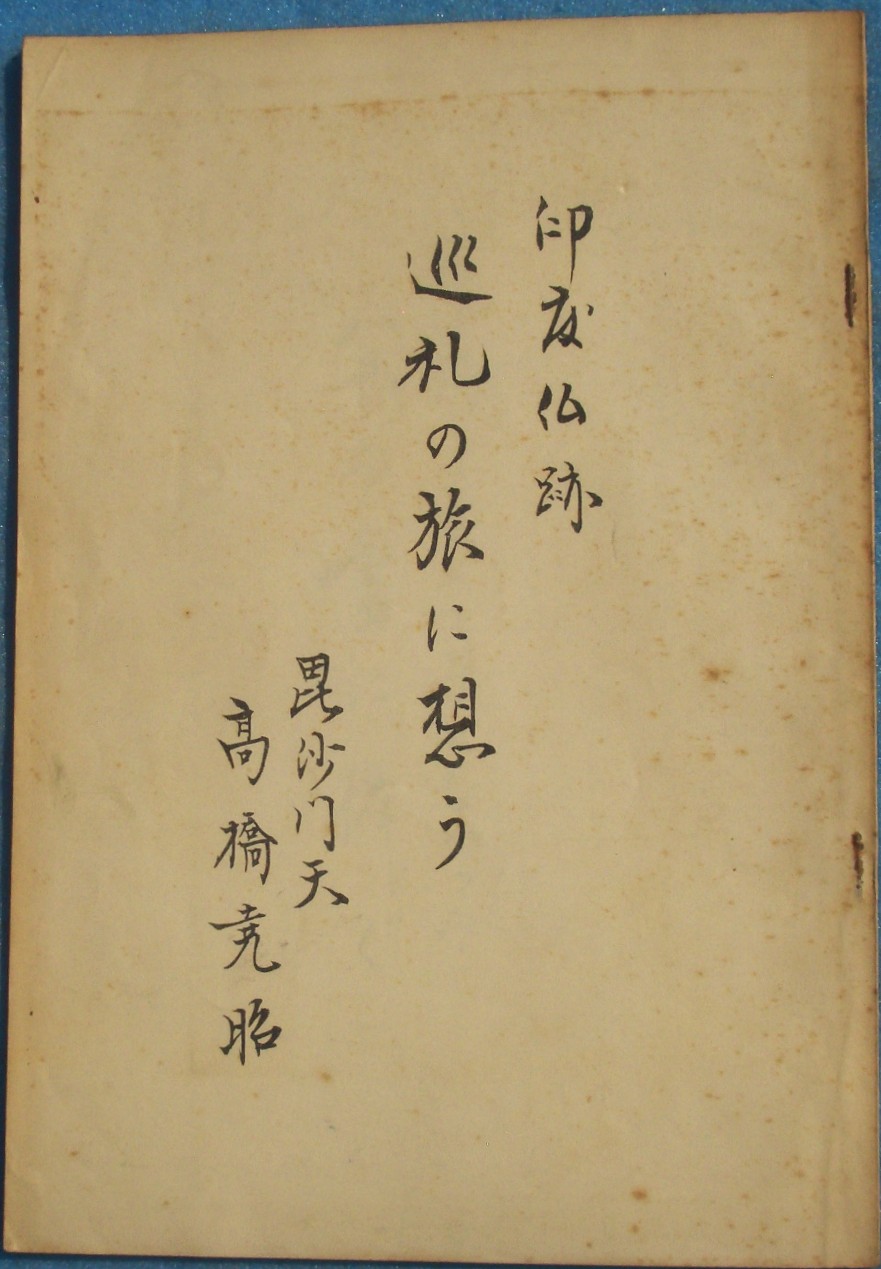 印度仏跡
巡礼の旅に想う
毘沙門天
高橋尭昭